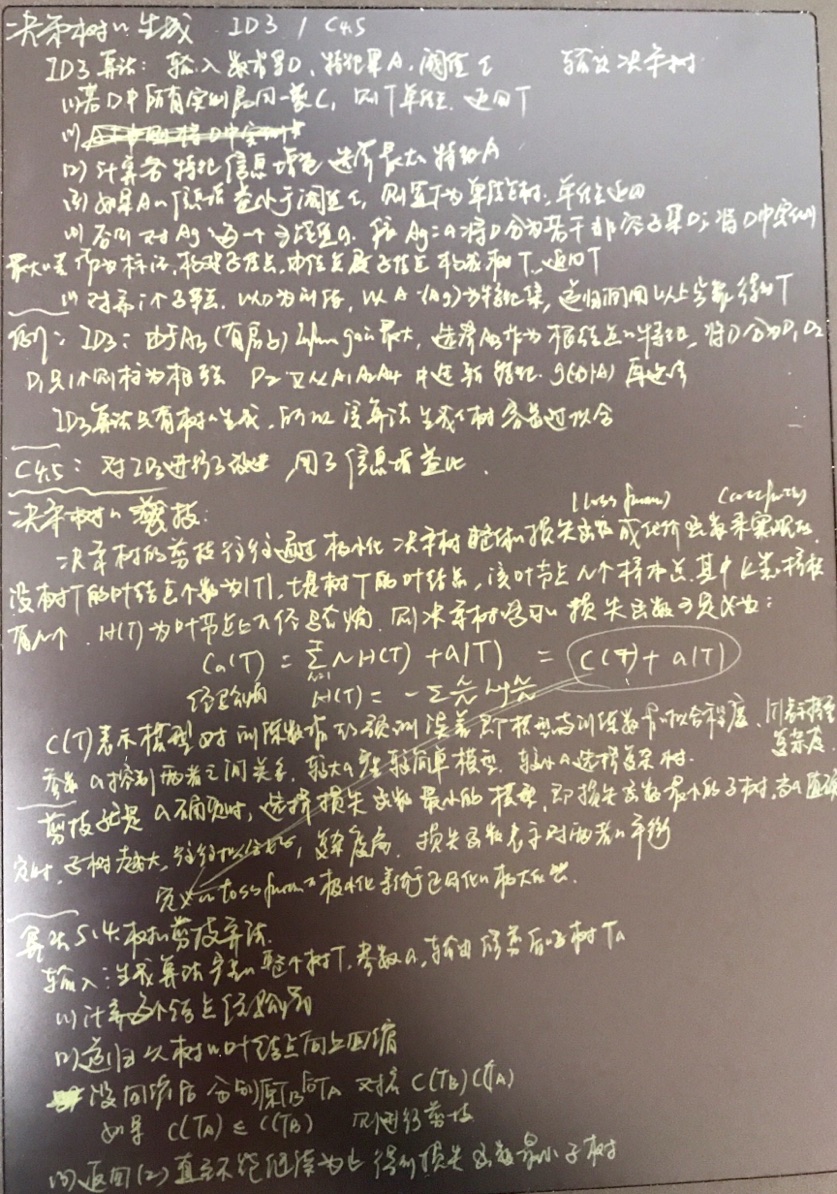 决策树的生成 ID3 / C4.5
ID3算法: 输入数据集D, 特征集A, 阈值ε 输出决策树
(1)若D中所有实例属同一类C, 则T单结点, 返回T
(2)计算各特征信息增益 选择最大特征A
(3)如果A的信息增益小于阈值ε, 则置T为单结点树, 单结点返回
(4)否则 对Ag的每一个可能值a, 依Ag=a将D分为若干非空子集Di 将D中实例
最大的类作为标记, 构建子结点, 由结点及子结点构成树T, 返回T
(5)对第i个子结点, 以Di为训练, 以A-{Ag}为特征集, 递归调用以上步骤得到T
例: ID3: 由于A3(有房子) infor gain 最大, 选择A3作为根结点的特征, 将D分为D1, D2
D1只1个则 D2又从A1A2A4中选新特征 g(D|A) 再选
ID3算法只有树的生成, 所以该算法生成的树容易过拟合
C4.5: 对ID3进行了改进, 用了信息增益比.
决策树的剪枝:
(loss func) (cost func)
决策树的剪枝往往通过极小化决策树整体的损失函数或代价函数来实现的.
设树T的叶结点个数为|T|, t是树T的叶结点, 该叶节点N个样本点, 其中k类样本
有N个. H(T)为叶节点上的经验熵. 则决策树学习的损失函数可定义为:
Ca(T) = Σ N H(T) + a|T| = C(T) + a|T|
经验熵 H(T) = -Σ N/N log N/N
C(T)表示模型对训练数据的预测误差 即模型与训练数据的拟合程度, |T|表示模型
复杂度
参数a控制两者之间关系, 较大a 较简单模型. 较小a选择复杂树.
剪枝就是a确定时, 选择损失函数最小的模型, 即损失函数最小的子树, 当a值确
定时, 子树越大, 往往拟合越好, 复杂度高. 损失函数表示对两者的平衡
定义的loss func的极小化等价于正则化的极大似然.
算法5.4. 树的剪枝算法.
输入: 生成算法产生的整个树T, 参数a, 输出修剪后的子树Ta
(1)计算每个结点经验熵
(2)递归从树的叶结点向上回缩
设回缩后 分别原TB与TA 对应 C(TB) C(TA)
如果 C(TA) ≤ C(TB) 则进行剪枝
(3)返回(2) 直至不能继续为止 得到损失函数最小子树